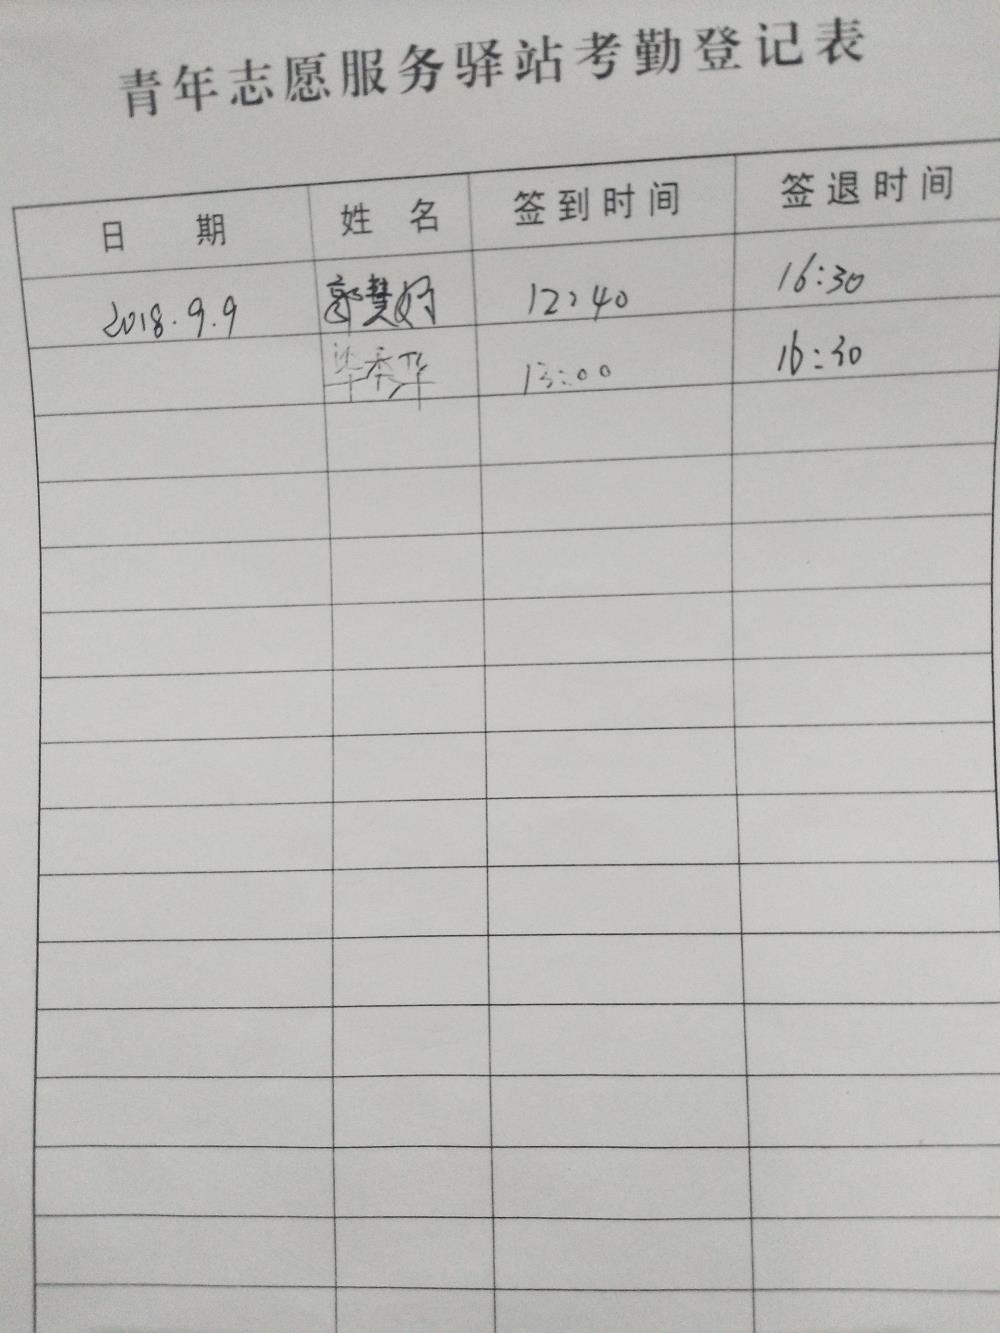 青年志愿服务驿站考勤登记表
日 期 姓 名 签到时间 签退时间
2018.9.9 郭慧好 12:40 16:30
毕秀华 13:00 16:30